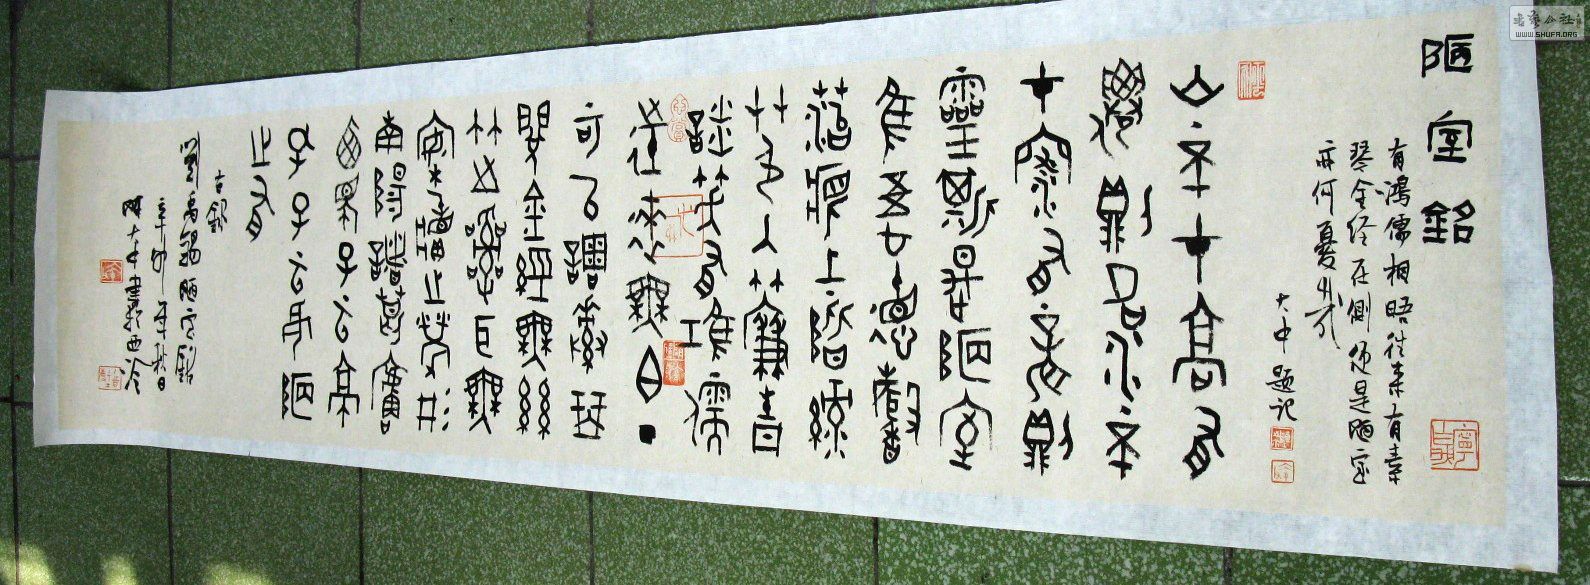 陋室銘
有鴻儒相晤往来有素
琴金经在側便是陋室
亦何憂哉
大中题记
山不在高有
僊則名水不
在深有龍則
靈斯是陋室
惟吾德馨
苔痕上階綠
艸色入簾青
談笑有鴻儒
往來無白丁
可以調素琴
閱金經無絲
竹之亂耳無
案牘之勞形
南陽諸葛廬
西蜀子云亭
孔子云何陋
之有
古鉨
劉禹錫陋室銘
辛卯年秋日
陳大中書於西泠
书艺公社
WWW.SHUFA.ORG